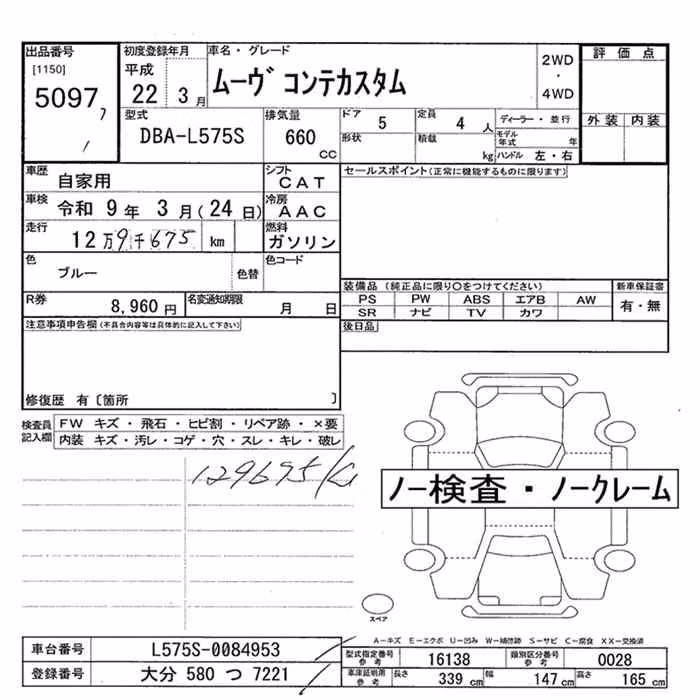 出品番号
[1150]
5097
初度登録年月
平成
22 3月
車名・グレード
ムーヴ コンテカスタム
2WD
・
4WD
評価点
外装 内装
型式
DBA-L575S
排気量
660
cc
ドア 5
形状
定員 4 人
積載 kg
ディーラー・並行
モデル年式 年
ハンドル 左・右
車歴
自家用
シフト
CAT
車検
令和 9年 3月(24日)
冷房
AAC
走行
12万9千675 km
燃料
ガソリン
色
ブルー
色替
色コード
R券
8,960円
名変通知期限
月 日
セールスポイント(正常に機能するものに限ります)
装備品 (純正品に限り○をつけてください)
新車保証書
PS PW ABS エアB AW
SR ナビ TV カワ
有・無
後日品
注意事項申告欄(不具合内容等は具体的に記入して下さい)
修復歴 有〔箇所 〕
検査員
記入欄
FW キズ・飛石・ヒビ割・リペア跡・×要
内装 キズ・汚レ・コゲ・穴・スレ・キレ・破レ
129695
ノー検査・ノークレーム
スペア
A-キズ E-エクボ U-凹み W-補修跡 S-サビ C-腐食 XX-交換済
車台番号
L575S-0084953
登録番号
大分 580 つ 7221
型式指定番号
参考
16138
類別区分番号
参考
0028
車庫証明用
参考
長さ 339 cm
幅 147 cm
高さ 165 cm